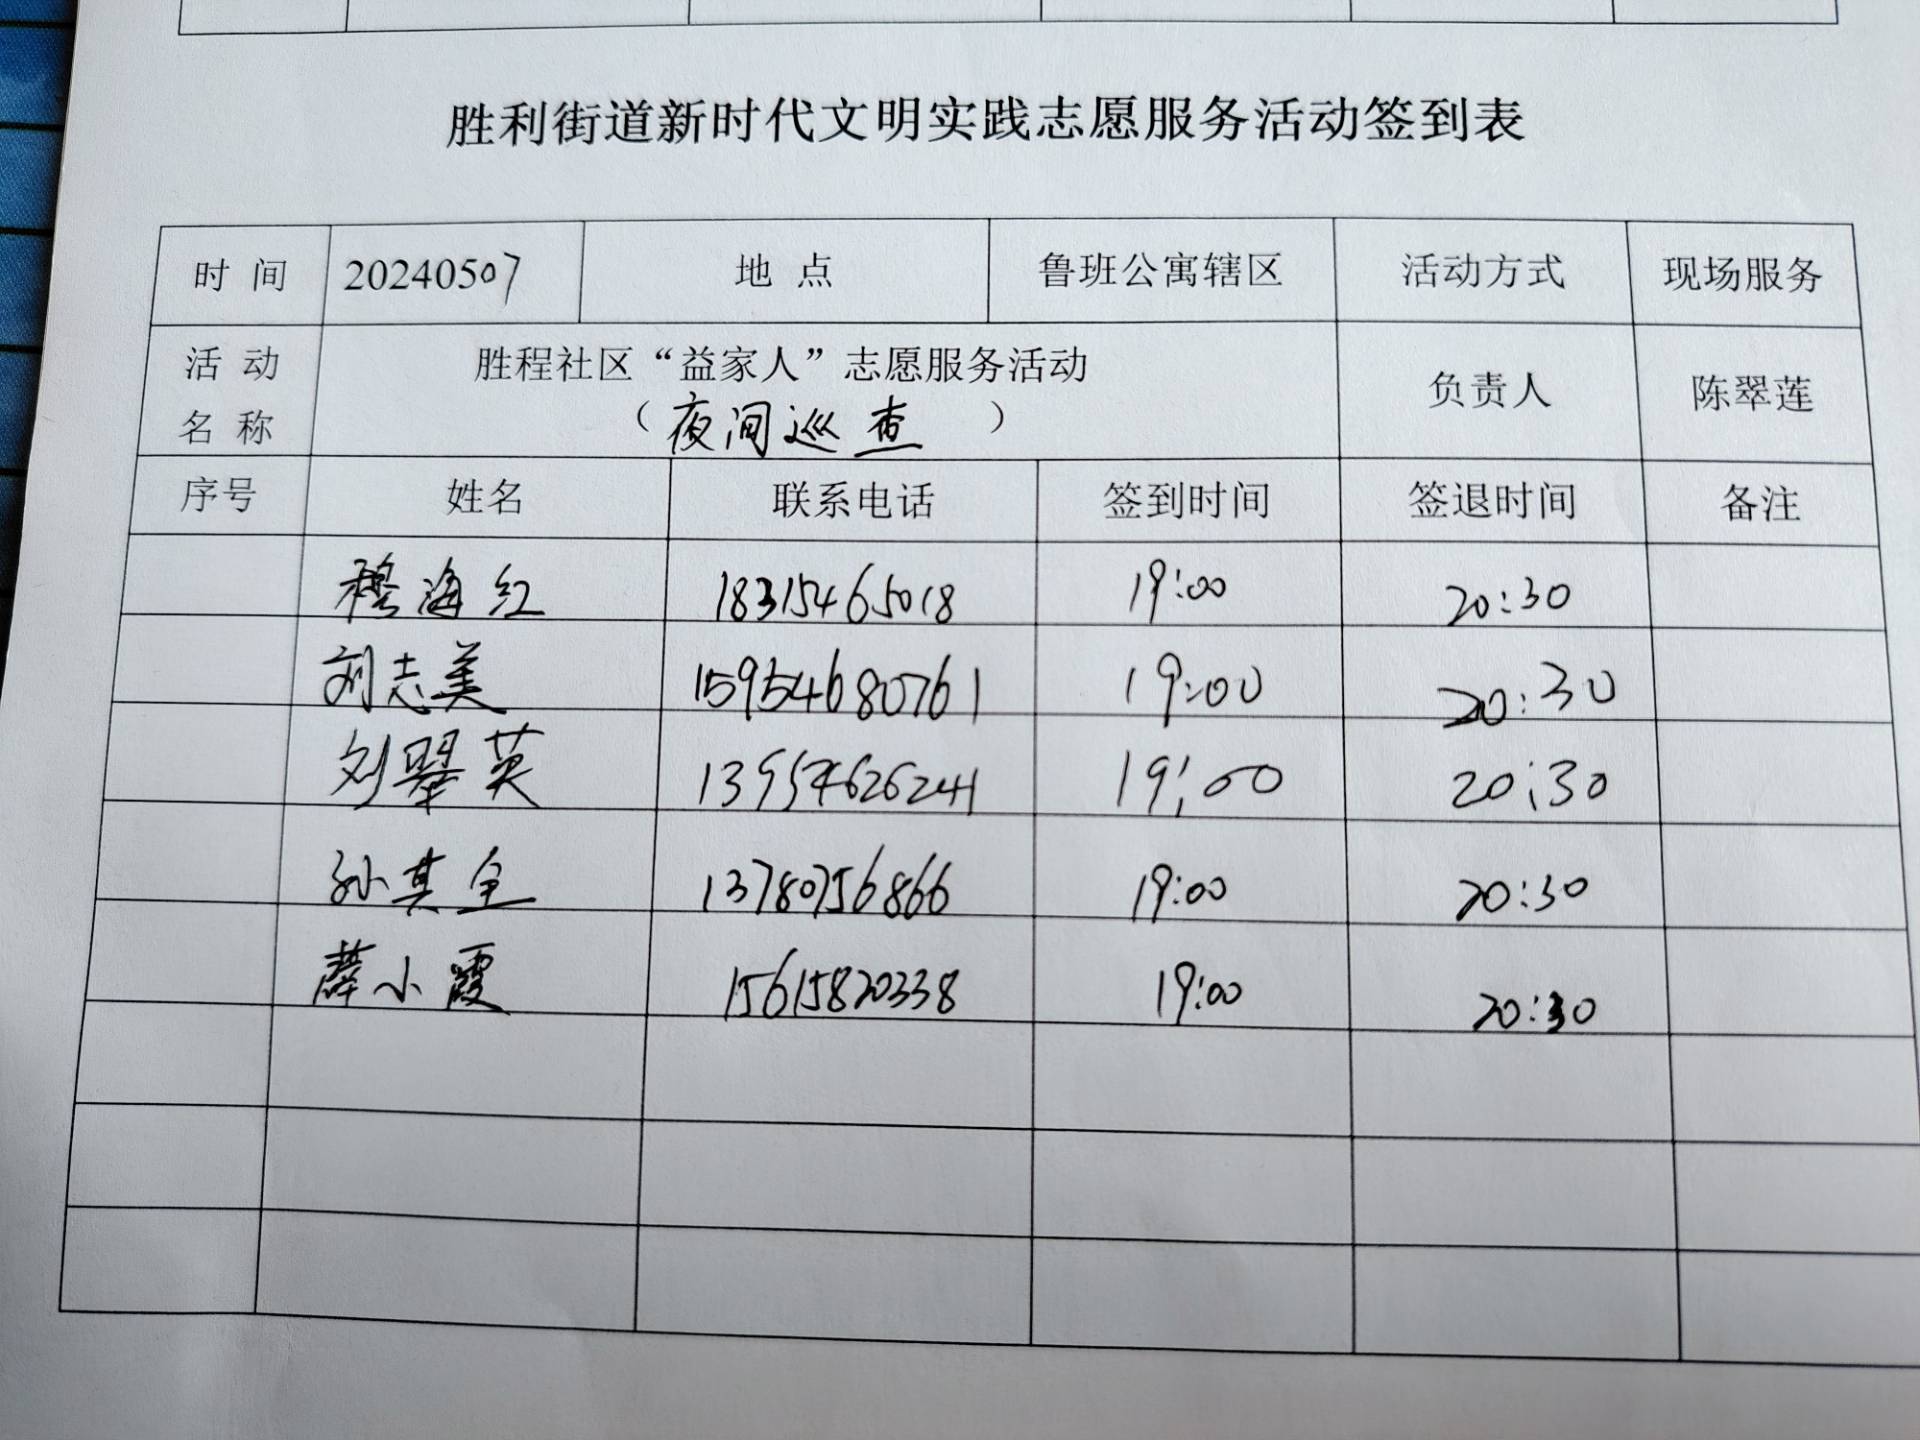 胜利街道新时代文明实践志愿服务活动签到表
时 间 20240507 地 点 鲁班公寓辖区 活动方式 现场服务
活 动 名 称 胜程社区“益家人”志愿服务活动 负责人 陈翠莲
（夜间巡查）
序号 姓名 联系电话 签到时间 签退时间 备注
穆海红 18315465018 19:00 20:30
刘志美 15954680761 19:00 20:30
刘翠英 13954626241 19:00 20:30
孙其全 13780756866 19:00 20:30
薛小霞 15615820338 19:00 20:30